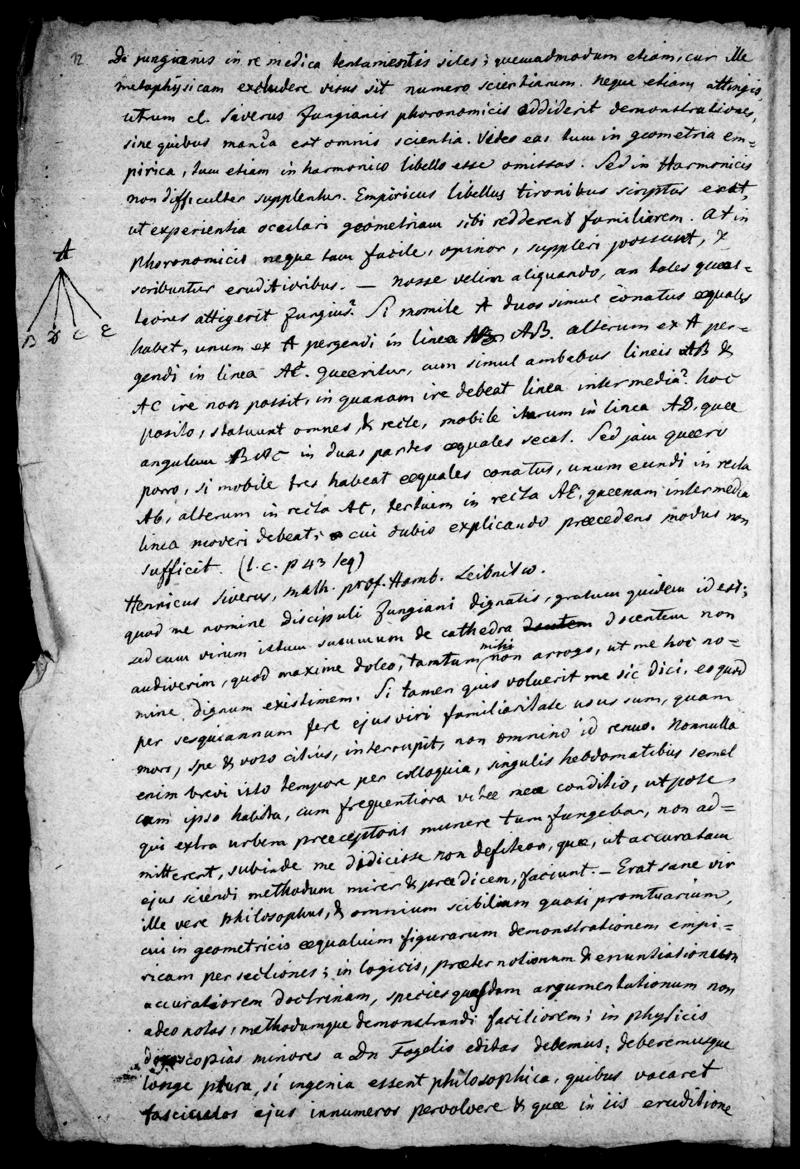 De jungianis in re medica tentamentis siles; quemadmodum etiam, cur ille
metaphysicam excludere visus sit numero scientiarum. neque etiam attingis,
utrum cl. Siverus Jungianis phoronomicis addiderit demonstrationes,
sine quibus manca est omnis scientia. Vides eas tum in geometria em=
pirica, tum etiam in harmonico libello esse omissas. Sed in Harmonicis
non difficulter supplentur. Empiricus libellus tironibus scriptus erat,
ut experientia oculari geometriam sibi redderent familiarem. At in
phoronomicis neque tam facile, opinor, suppleri possunt, &
scribuntur eruditioribus. — nosse velim aliquando, an tales quæs-
tiones attigerit Jungius? Si mobile A duos simul conatus æquales
habet, unum ex A pergendi in linea AB. alterum ex A per-
gendi in linea AC. quæritur, cum simul ambabus lineis AB &
AC ire non possit, in quanam ire debeat linea intermedia? hoc
posito, statuunt omnes, & recte, mobile iturum in linea AD, quæ
angulum BAC in duas partes æquales secat. Sed jam quæro
porro, si mobile tres habeat æquales conatus, unum eundi in recta
Ab, alterum in recta AC, tertium in recta AE, quænam intermedia
linea moveri debeat; cui dubio explicando præcedens modus non
sufficit. (l.c. p 43 seq)
Henricus Siverus, math. prof. Hamb. Leibnitio.
quod me nomine discipuli Jungiani dignatis, gratum quidem id est;
sed cum virum istum summum de cathedra docentem non
audiverim, quod maxime doleo, tantum mihi non arrogo, ut me hoc no=
mine dignum existimem. Si tamen quis voluerit me sic dici, eo quod
per sesquiannum fere ejus viri familiaritate usus sum, quam
mors, spe & voto citius, interrupit, non omnino id renuo. Nonnulla
enim brevi isto tempore per colloquia, singulis hebdomatibus semel
cum ipso habita, cum frequentiora vitæ meæ conditio, utpote
qui extra urbem præceptoris munere tum fungebar, non ad=
mitterent, subinde me didicisse non defiteor, quæ, ut accuratam
ejus sciendi methodum mirer & prædicem, faciunt. — Erat sane vir
ille vere philosophus, & omnium scibilium quasi promtuarium,
cui in geometricis æqualium figurarum demonstrationem empi=
ricam per sectiones; in logicis, præter notionum & enuntiationum
accuratiorem doctrinam, species quasdam argumentationum non
adeo notas, methodumque demonstrandi faciliorem; in physicis
doxoscopias minores a Dn Fogelio editas debemus; deberemusque
longe plura, si ingenia essent philosophica, quibus vacaret
fasciculos ejus innumeros pervolvere & quæ in iis eruditione
12
A
B D C E